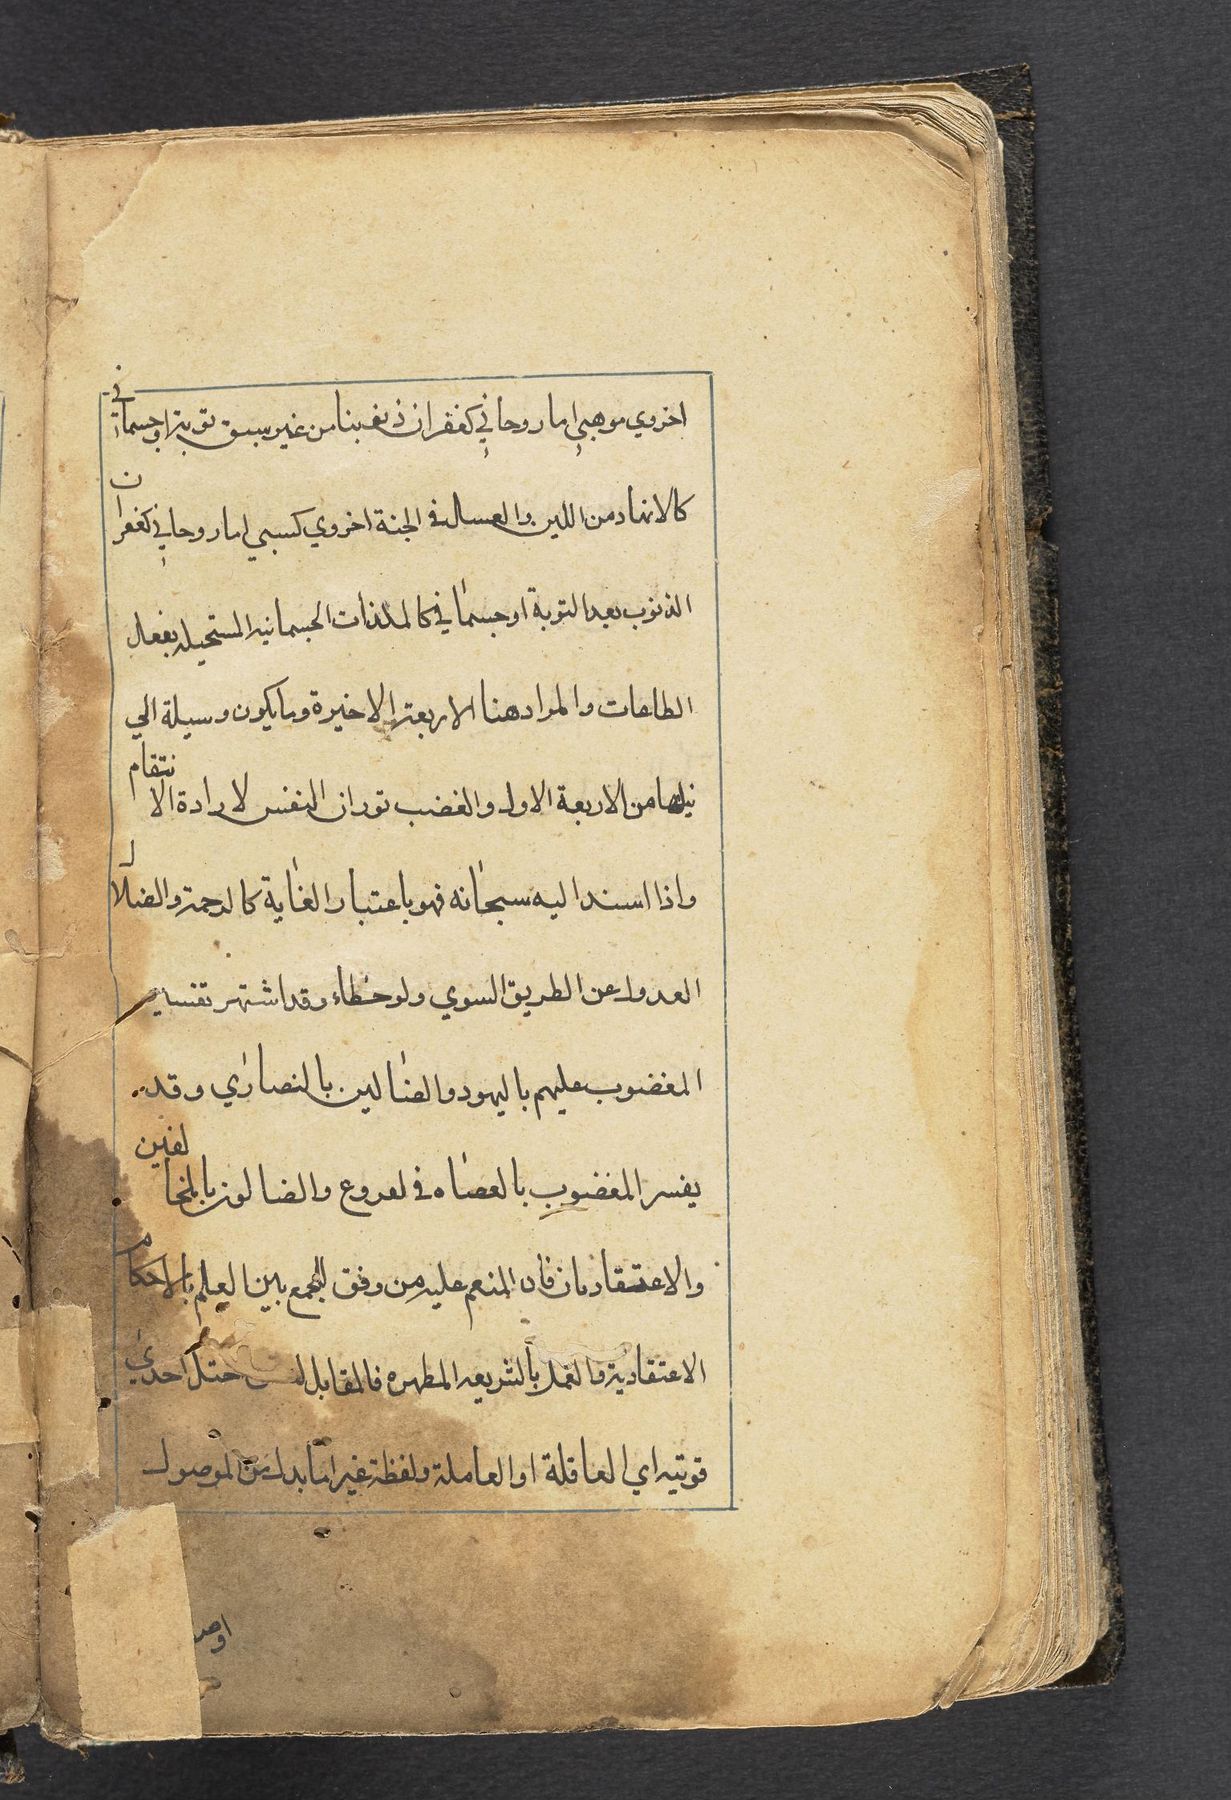 اخروي موهبي اما روحاني كغفران ذنوبنا من غير سبق توبة او جسماني
كالانهار من اللبن والعسال في الجنة اخروي كسبي اما روحاني كغفران
الذنوب بعد التوبة او جسماني كالملذات الجسمانيه المستحيله بفعال
الطاعات والمراد هنا الاربعة الاخيرة وما يكون وسيلة الي
نيلها من الاربعة الاول والغضب توران النفس لارادة الانتقام
واذا اسند اليه سبحانه فهو باعتبار الغاية كالرحمة والضلال
العدول عن الطريق السوي ولو خطاء وقد اشتهر تفسير
المغضوب عليهم باليهود والضالين بالنصاري وقد
يفسر المغضوب بالعصاه في لفروع والضالون بالمخالفين
والاعتقاديات فان المنعم عليه من وفق للجمع بين العلم بالاحكام
الاعتقادية والعمل بالشريعه المطهره فالمقابل اختل احدي
قوتيه اي العاقلة او العاملة ولفظة غير اما بدل من الموصول
اوصـ